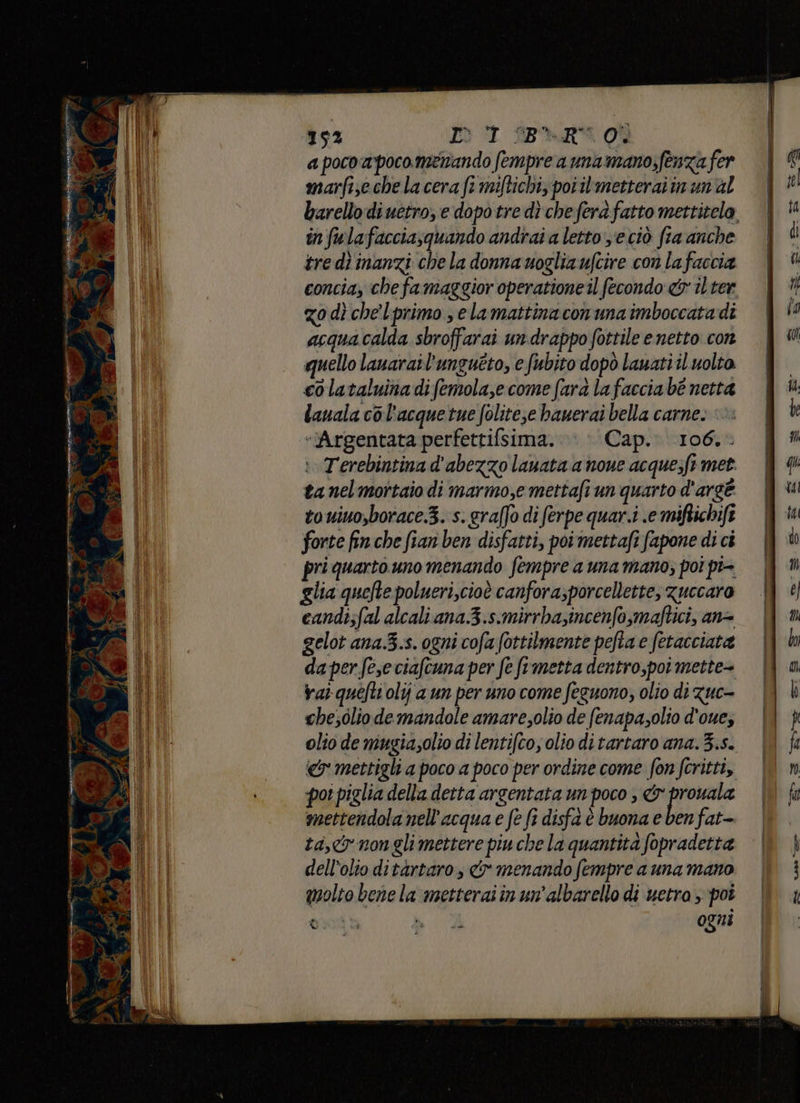 152 D I B R O.
a poco a poco menando ſempre a una mano, ſenza fer
marſi, e che la cera ſi miſtichi, poi il metterai in un al
barello di uetro, e dopo tre dì che ſerà fatto mettitelo
in ſu la faccia, quando andrai a letto, e ciò ſia anche
tre dì inanzi che la donna uoglia uſcire con la faccia
concia, che fa maggior operatione il ſecondo & il ter
zo dì che'l primo, e la mattina con una imboccata di
acqua calda sbroffarai un drappo ſottile e netto con
quello lauarai l'unguẽto, e ſubito dopò lauati il uolto
cõ la taluina di ſemola, e come ſarà la faccia bẽ netta
lauala cõ l'acque tue ſolite, e hauerai bella carne.
Argentata perfettiſsima. Cap. 106.
Terebintina d'abezzo lauata a noue acque, ſi met
ta nel mortaio di marmo, e mettaſi un quarto d'argẽ
to uiuo, borace.℥. s. graſſo di ſerpe quar.i .e miſtichiſi
forte fin che ſian ben disfatti, poi mettaſi ſapone di ci
pri quarto uno menando ſempre a una mano, poi pi-
glia queſte polueri, cioè canfora, porcellette, zuccaro
candi, ſal alcali ana.℥.s. mirrha, incenſo, maſtici, an-
gelot ana.℥.s. ogni coſa ſottilmente peſta e ſetacciata
da per ſe, e ciaſcuna per ſe ſi metta dentro, poi mette-
rai queſti olij a un per uno come ſeguono, olio di zuc-
che, olio de mandole amare, olio de ſenapa, olio d'oue,
olio de mugia, olio di lentiſco, olio di tartaro ana.℥.s.
& mettigli a poco a poco per ordine come ſon ſcritti,
poi piglia della detta argentata un poco, & prouala
mettendola nell'acqua e ſe ſi disfà è buona e ben fat-
ta, & non gli mettere piu che la quantità ſopradetta
dell'olio di tartaro, & menando ſempre a una mano
molto bene la metterai in un'albarello di uetro, poi
ogni